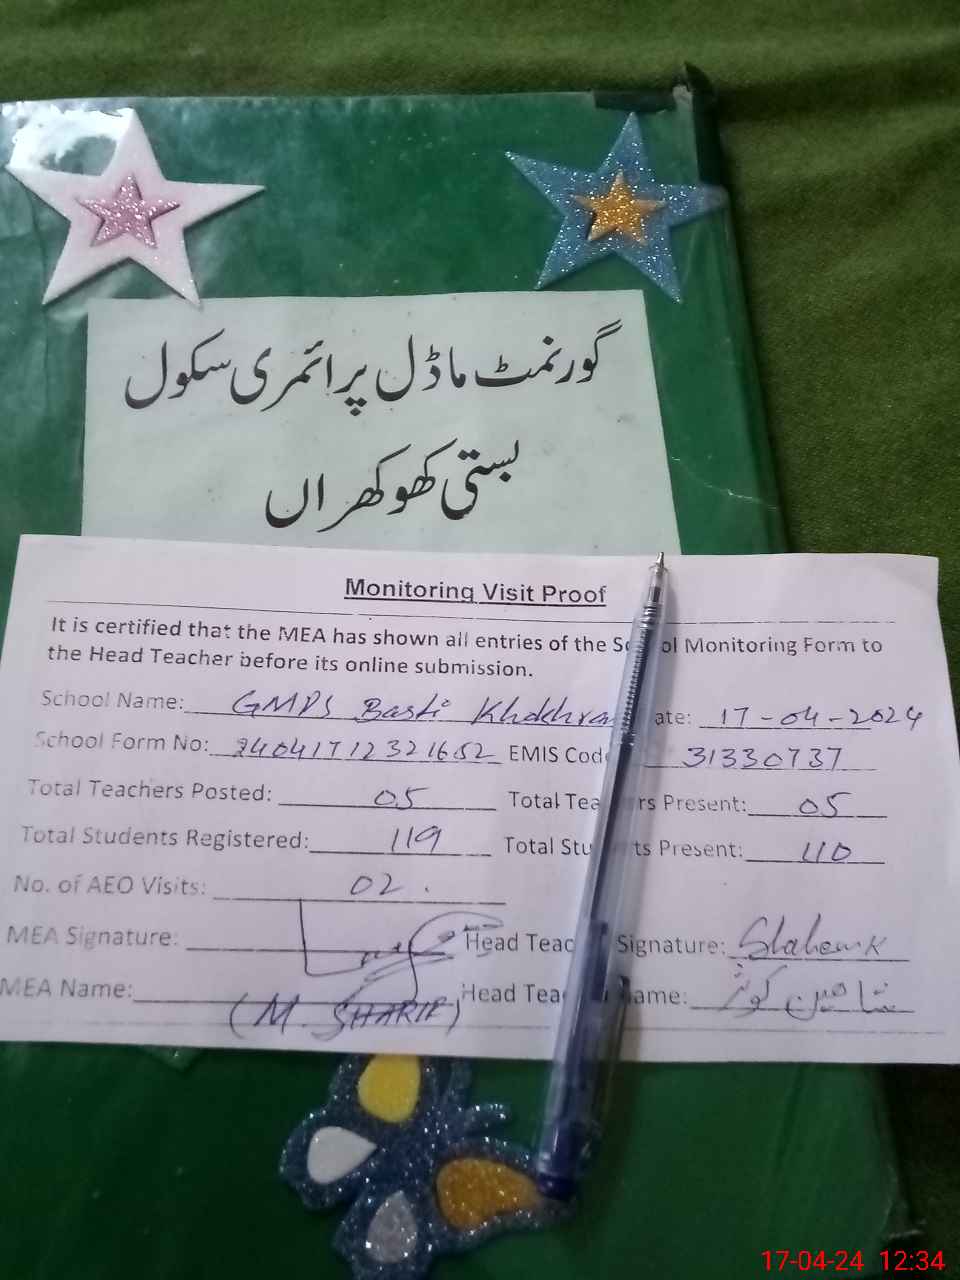 گورنمٹ ماڈل پرائمری سکول
بستی کھوکھراں
Monitoring Visit Proof
It is certified that the MEA has shown all entries of the Sc ol Monitoring Form to
the Head Teacher before its online submission.
School Name: GMPS Basti Khokhra ate: 17-04-2024
School Form No: 24041712321652 EMIS Cod 31330737
Total Teachers Posted: 05 Total Tea rs Present: 05
Total Students Registered: 119 Total Stu ts Present: 110
No. of AEO Visits: 02.
MEA Signature: Head Teac Signature: Shaheen K
MEA Name: (M. SHARIF) Head Tea ame: شاھین کوثر
17-04-24 12:34